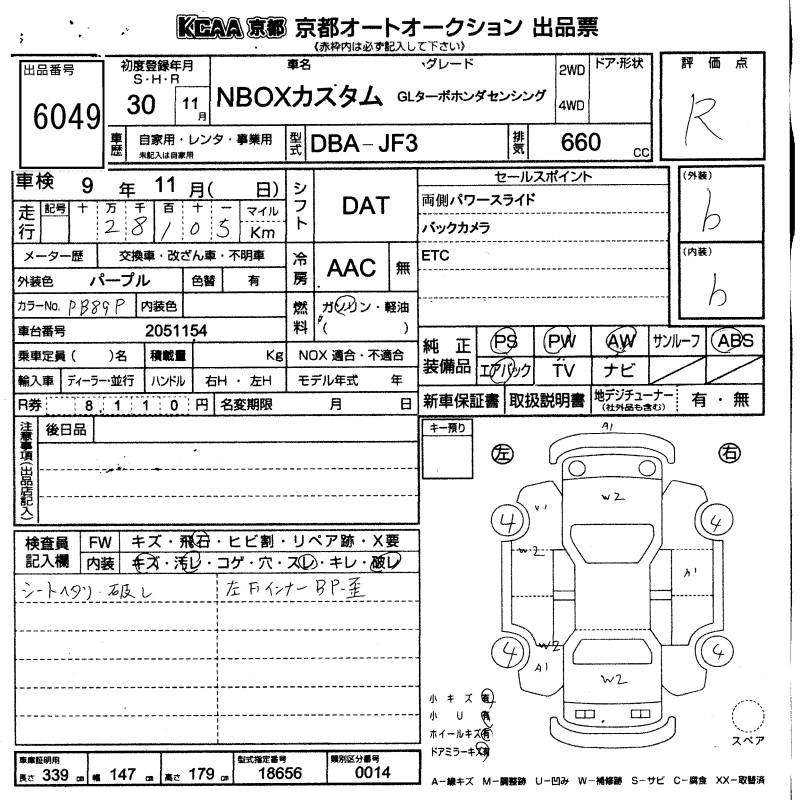 KCAA 京都 京都オートオークション 出品票
《赤枠内は必ず記入して下さい》
出品番号 6049
初度登録年月 S・H・R 30 11月
車名 NBOXカスタム
グレード GLターボホンダセンシング
2WD 4WD
ドア・形状
評価点 R
車歴 自家用・レンタ・事業用 未記入は自家用
型式 DBA-JF3
排気 660 CC
車検 9年 11月( 日)
シフト DAT
セールスポイント
両側パワースライド
バックカメラ
ETC
(外装) b
(内装) b
走行 記号 十 万 千 百 十 一 マイル Km
2 8 1 0 5
メーター歴 交換車・改ざん車・不明車
冷房 AAC 無
外装色 パープル 色替 有
カラーNo. PB89P 内装色
燃料 ガソリン・軽油 ( )
車台番号 2051154
乗車定員( )名 積載量 Kg NOX 適合・不適合
輸入車 ディーラー・並行 ハンドル 右H・左H モデル年式 年
R券 8,110円 名変期限 月 日
純正装備品 PS PW AW サンルーフ ABS
エアバック TV ナビ
新車保証書 取扱説明書 地デジチューナー (社外品も含む) 有・無
注意事項(出品店記入) 後日品
キー預り
検査員記入欄 FW キズ・飛石・ヒビ割・リペア跡・X要
内装 キズ・汚レ・コゲ・穴・スレ・キレ・破レ
シートヘタリ・破し
左Fインナー BP-歪
A1
左 右
W2
V1
4 4
W2
A1
W2
4 4
A1
W2
小キズ 有
小U 有
ホイールキズ 有
ドアミラーキズ 有
スペア
車庫証明用 長さ 339 cm 幅 147 cm 高さ 179 cm
型式指定番号 18656
類別区分番号 0014
A−線キズ M−調整跡 U−凹み W−補修跡 S−サビ C−腐食 XX−取替済